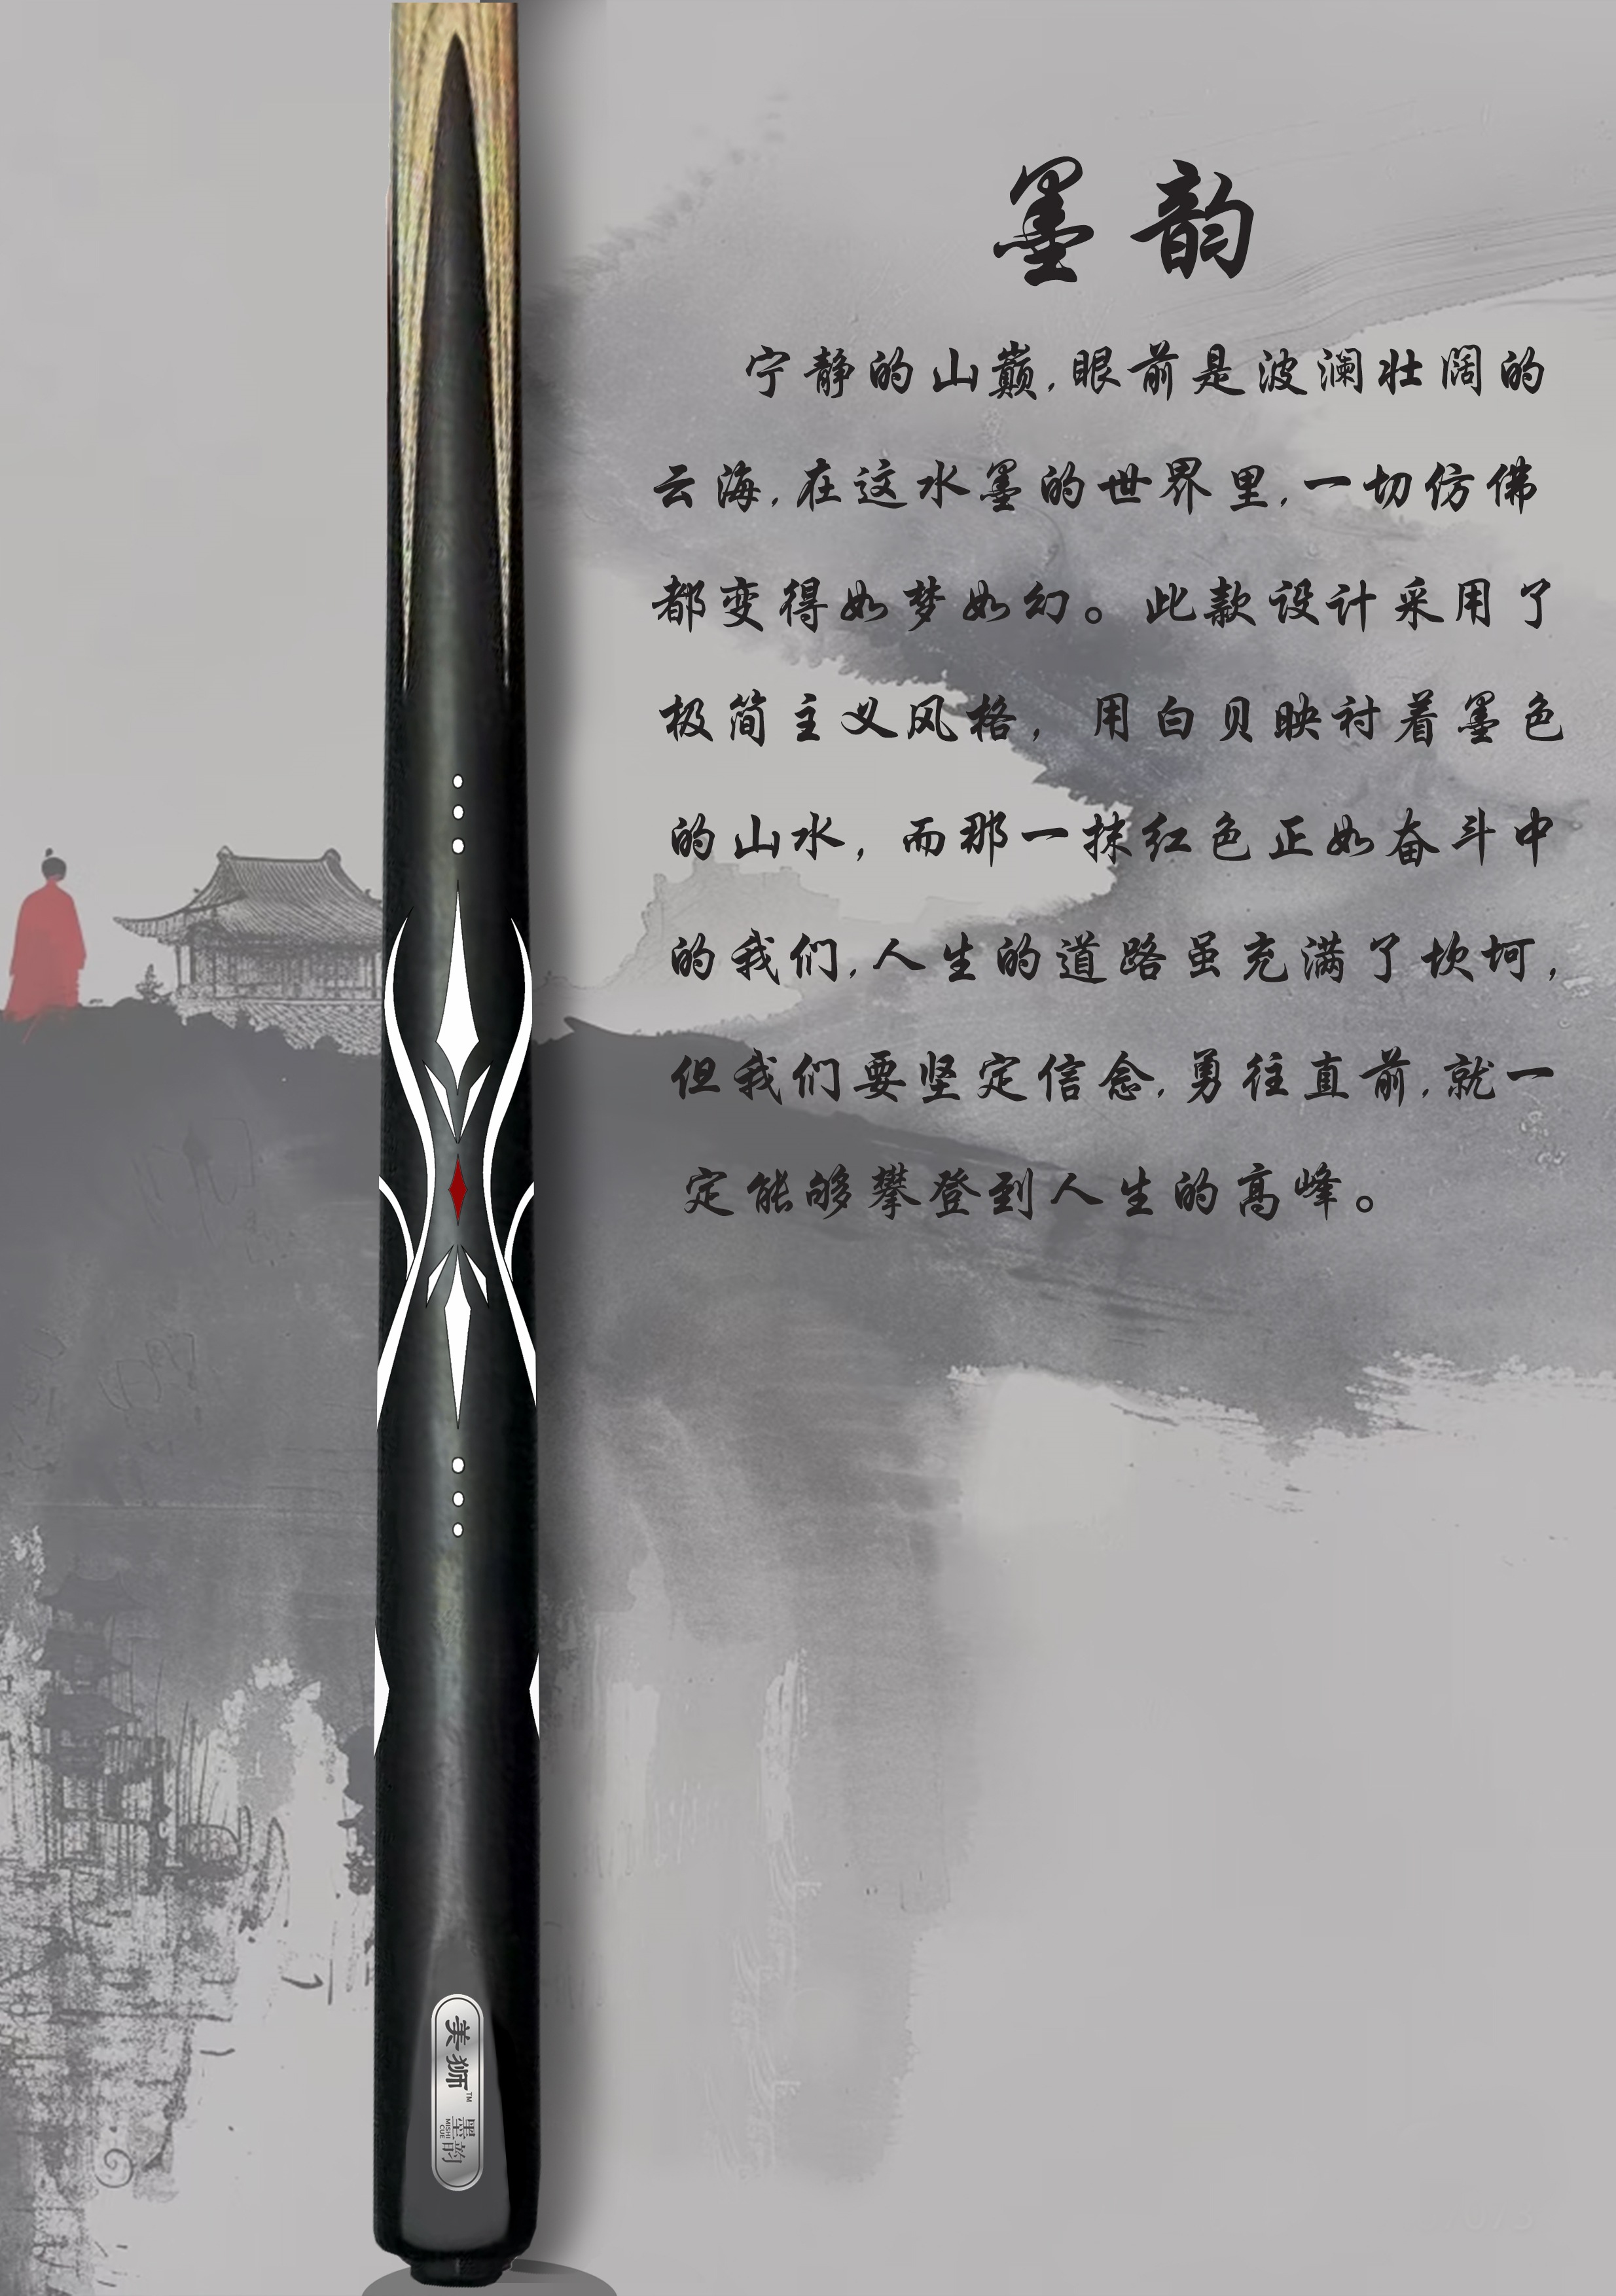 墨韵
宁静的山巅,眼前是波澜壮阔的
云海,在这水墨的世界里,一切仿佛
都变得如梦如幻。此款设计采用了
极简主义风格，用白贝映衬着墨色
的山水，而那一抹红色正如奋斗中
的我们,人生的道路虽充满了坎坷,
但我们要坚定信念,勇往直前,就一
定能够攀登到人生的高峰。
美狮™
墨韵
MISHI CUE